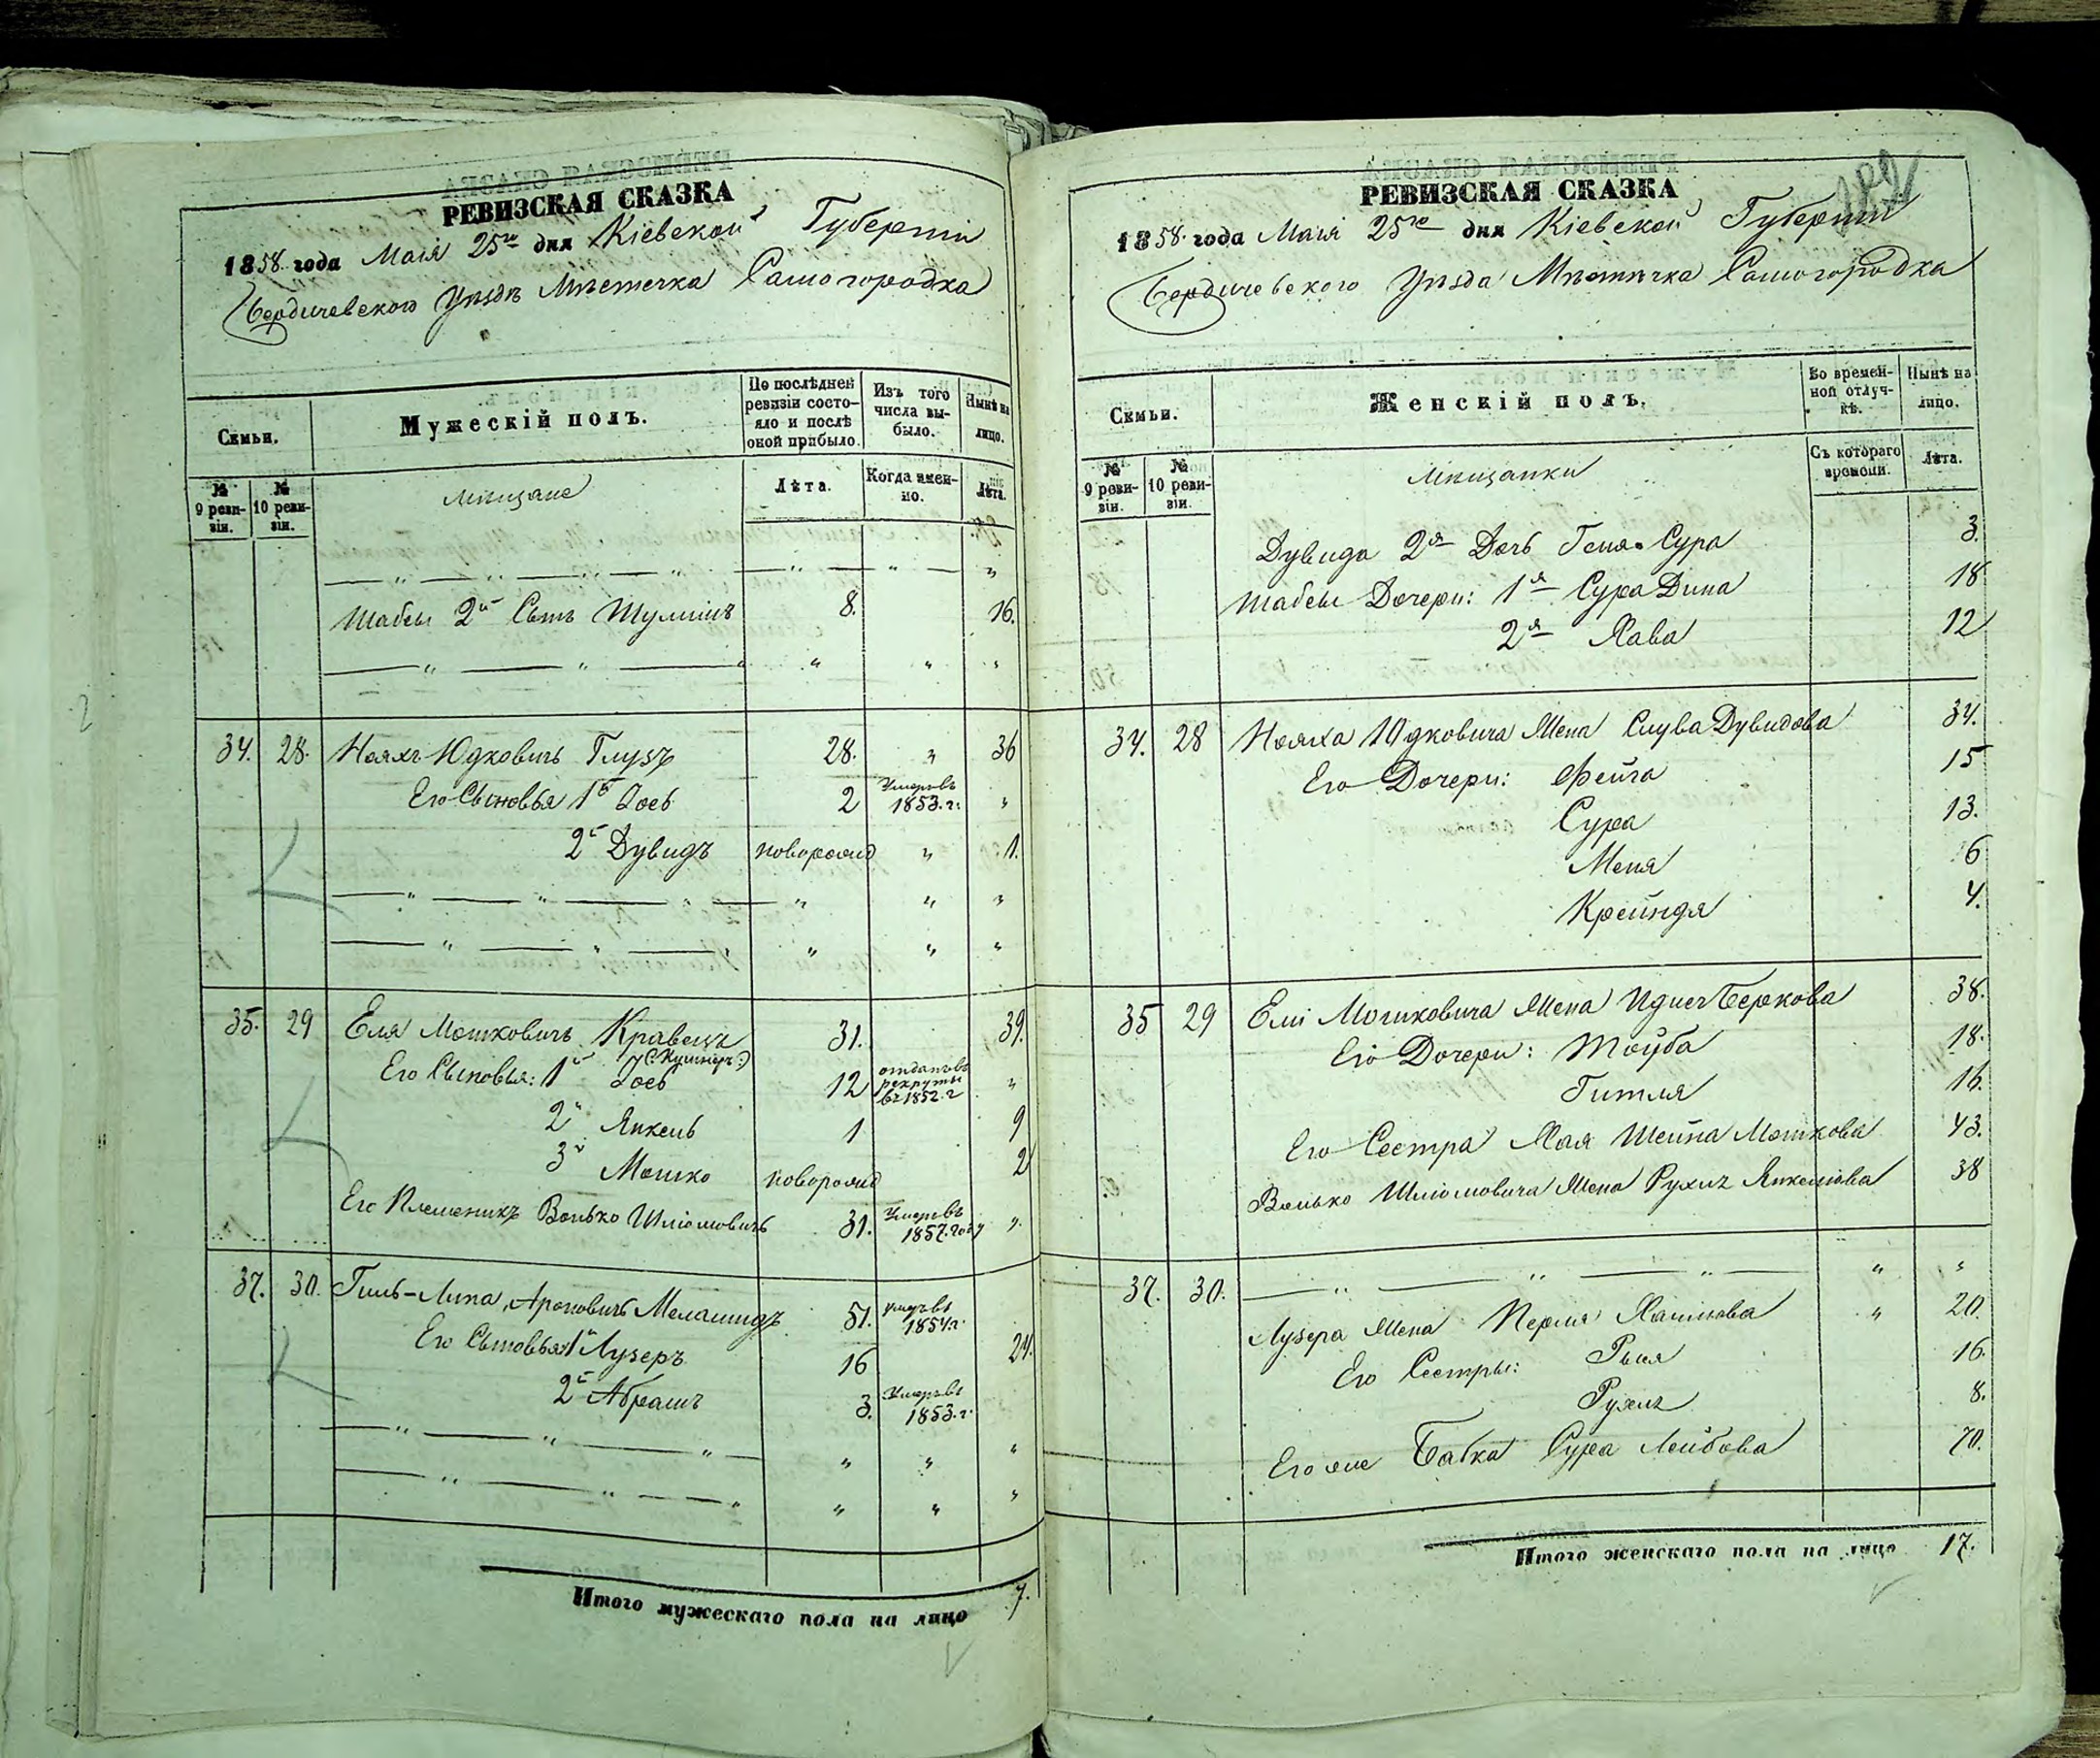 РЕВИЗСКАЯ СКАЗКА
1858 года Маія 25го дня Кіевской Губерніи
Бердичевского Уѣзда Мѣстечка Самогородка
Семьи.
Мужескій полъ.
По послѣдней ревизіи состояло и послѣ оной прибыло.
Изъ того числа выбыло.
Нынѣ на лицо.
№ 9 ревизіи.
№ 10 ревизіи.
мѣщане
Лѣта.
Когда именно.
Лѣта.
— " — " — " — " — " — " — "
Шабсы 2й Сынъ Шулимъ 8. 16.
— " — " — " " " "
34. 28. Нояхъ Юдковичъ Глузъ 28. " 36
Его Сыновья 1й Іосъ 2 Умеръ въ 1853. г. "
2й Дувидъ новорожд " 1.
— " — " — " — " " "
— " — " — " " " "
35. 29 Еля Мошковичъ Кравецъ 31. 39.
(:Кушнеръ:)
Его Сыновья: 1й Іосъ 12 отданъ въ рекруты въ 1852. г "
2й Янкель 1 9
3й Мошко новорожд 2
Его Племеникъ Волько Шліомовичъ 31. Умеръ въ 1857. году "
37. 30. Гиль-Липа Ароновичъ Меламидъ 51. умеръ въ 1854 г.
Его Сыновья 1й Лузеръ 16 24.
2й Абрамъ 3. Умеръ въ 1853. г.
— " — " — " — " " "
— " — " — " " " "
Итого мужескаго пола на лицо 7.
РЕВИЗСКАЯ СКАЗКА
1858. года Маія 25го дня Кіевской Губерніи
Бердичевского Уѣзда Мѣстечка Самогородка
Семьи.
Женскій полъ.
Во временной отлучкѣ.
Нынѣ на лицо.
№ 9 ревизіи.
№ 10 ревизіи.
мѣщанки
Съ котораго времени.
Лѣта.
Дувида 2я Дочь Геня Сура 3.
Шабсы Дочери: 1я Сура Дина 18
2я Хава 12
34. 28 Нояха Юдковича Жена Слува Дувидова 34.
Его Дочери: Фейга 15
Сура 13.
Меня 6
Крейндя 4.
35 29 Ели Мошковича Жена Идисъ Беркова 38.
Его Дочери: Тойба 18.
Гитля 16.
Его Сестра Хая Шейна Мошкова 43.
Волько Шліомовича Жена Рухля Янкелова 38
37. 30. — " — " — " — " "
Лузера Жена Перля Хаимова " 20.
Его Сестры: Рыся 16.
Рухля 8.
Его же Бабка Сура Лейбова 70.
Итого женскаго пола на лицо 17.